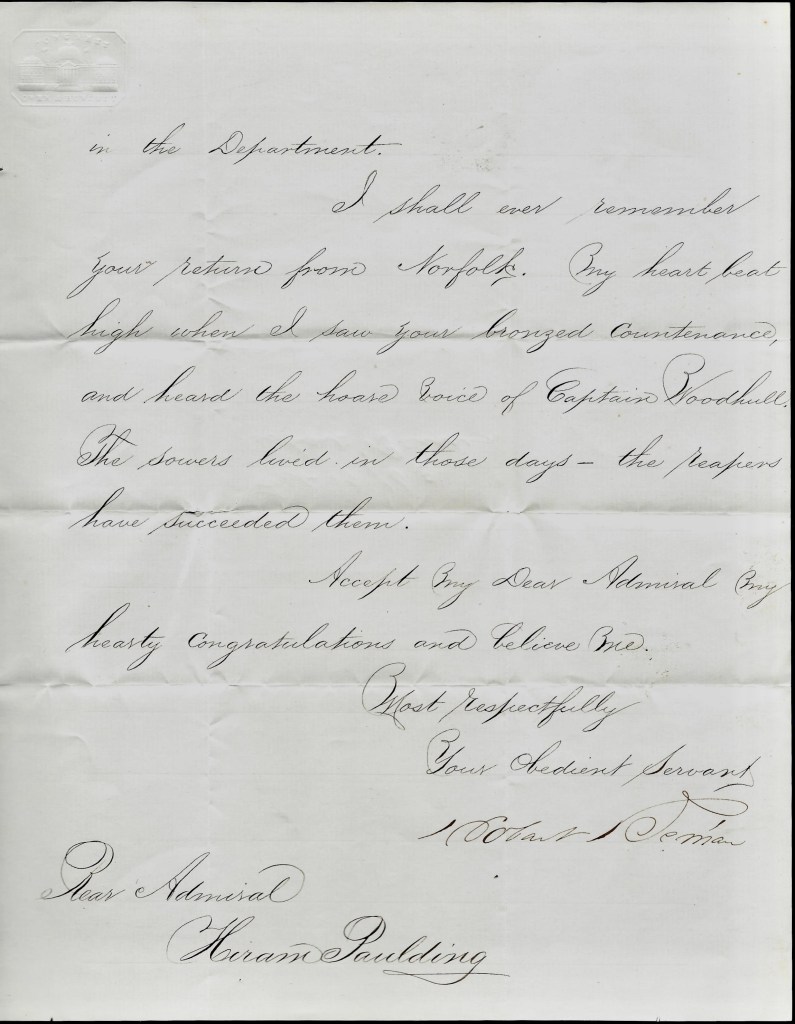 in the Department.
I shall ever remember
your return from Norfolk. My heart beat
high when I saw your bronzed countenance,
and heard the hoarse voice of Captain Woodhull.
The sowers lived in those days — the reapers
have succeeded them.
Accept my Dear Admiral my
hearty congratulations and believe me.
Most respectfully
Your Obedient Servant
Robert
Rear Admiral
Hiram Paulding